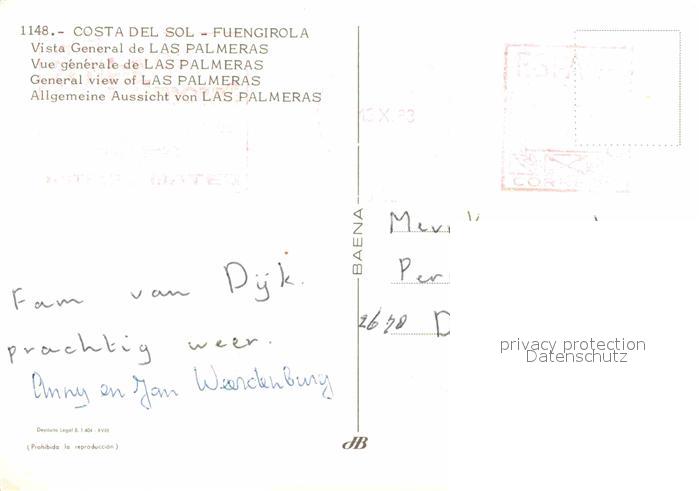 1148.- COSTA DEL SOL - FUENGIROLA
Vista General de LAS PALMERAS
Vue générale de LAS PALMERAS
General view of LAS PALMERAS
Allgemeine Aussicht von LAS PALMERAS
X.83
CORRE
BAENA
Fam van Dijk.
prachtig weer.
Anny en Jan Waardenburg
2670 D
privacy protection
Datenschutz
Deposito Legal B. 1.404 - XVIII
(Prohibida la reproducción)
JB